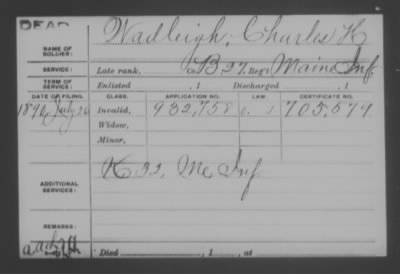 DEAD
NAME OF SOLDIER: Wadleigh, Charles H
SERVICE: Late rank, Co. B, 27, Reg't Maine Inf
TERM OF SERVICE: Enlisted , 1 Discharged , 1
DATE OF FILING. CLASS. APPLICATION NO. LAW CERTIFICATE NO.
1890, July 26 Invalid, 932,758 705,579
Widow,
Minor,
ADDITIONAL SERVICES: K 32, Me Inf
REMARKS:
Died , 1 , at